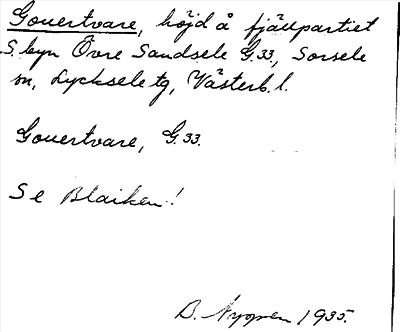 Gouertvare, höjd å fjällpartiet
S. byn Övre Sandsele G.33, Sorsele
sn, Lycksele tg, Västerb. l.
Gouertvare, G.33.
Se Blaiken!
B. Nygren 1935.